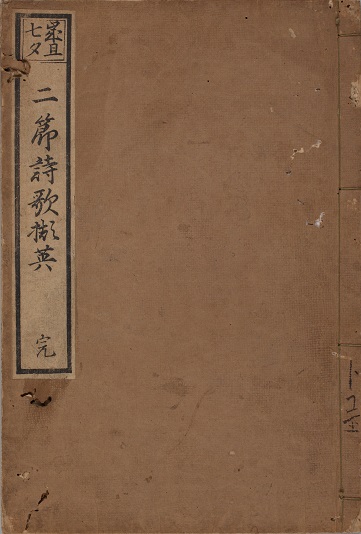 歳旦
七夕
二節詩歌擷英 完